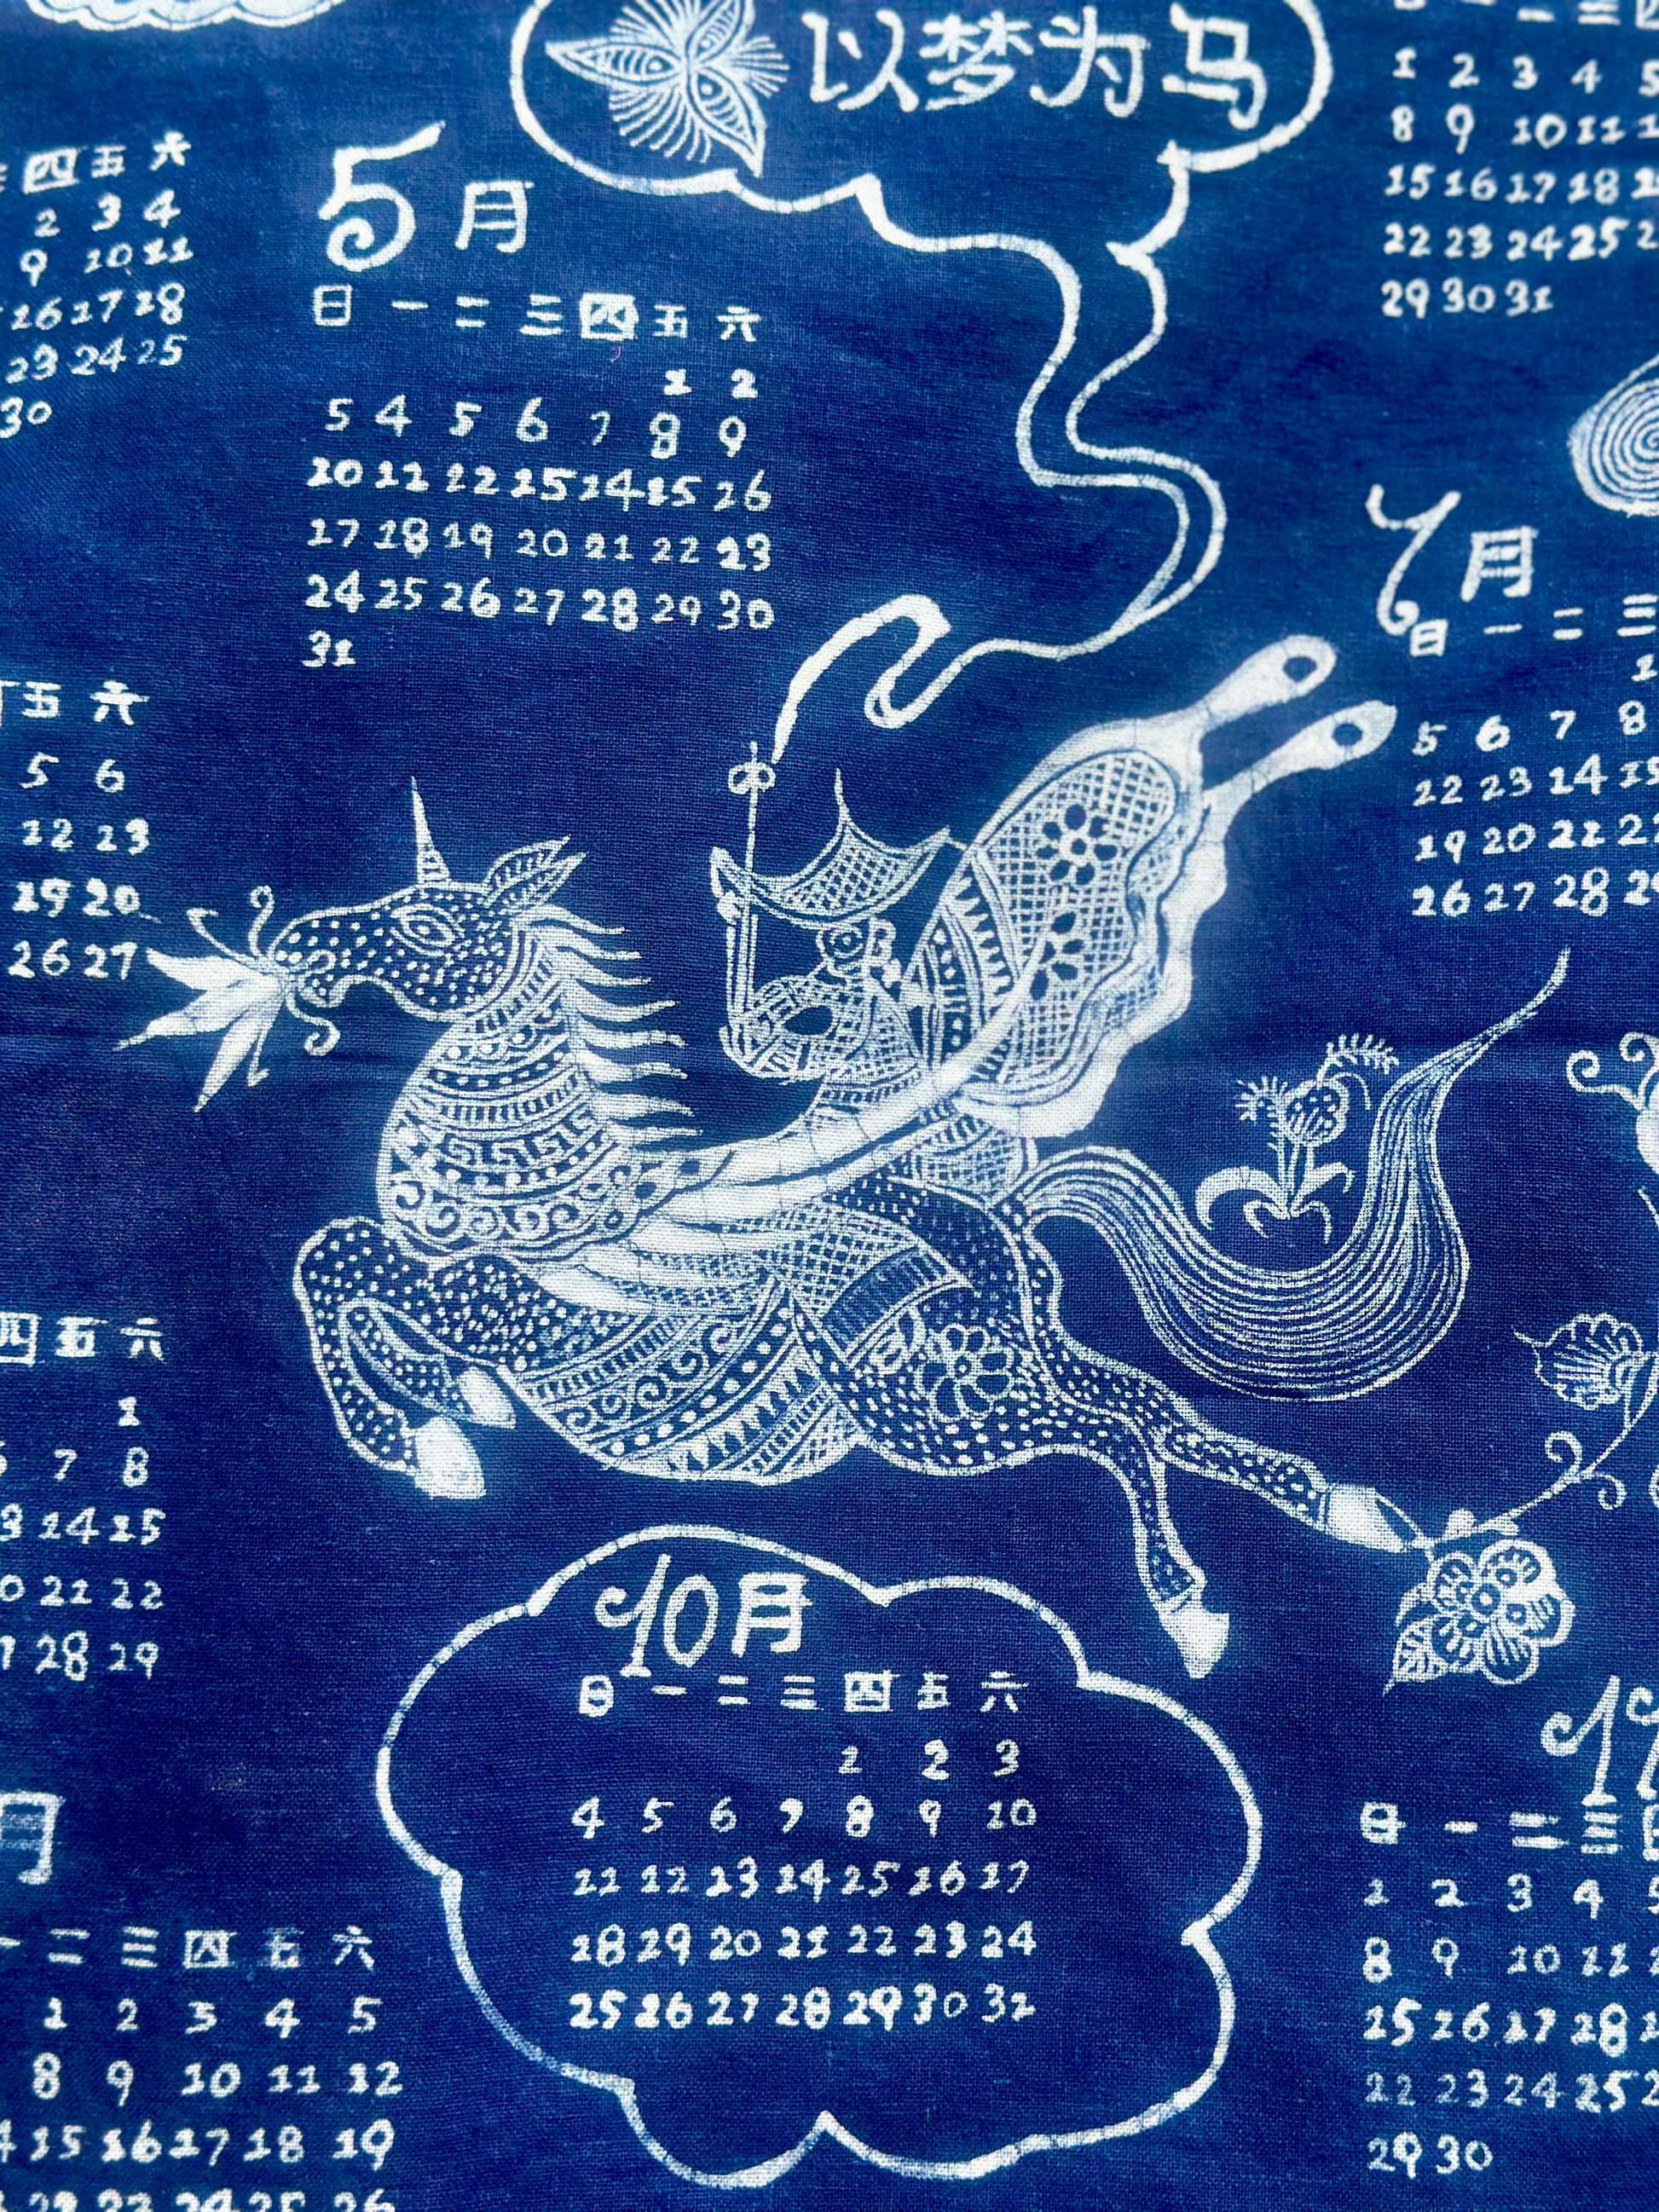 以梦为马
四 五 六
2 3 4
9 10 11
16 17 18
23 24 25
30
5月
日 一 二 三 四 五 六
1 2
3 4 5 6 7 8 9
10 11 12 13 14 15 16
17 18 19 20 21 22 23
24 25 26 27 28 29 30
31
1 2 3 4 5
8 9 10 11
15 16 17 18
22 23 24 25
29 30 31
7月
日 一 二 三
1
5 6 7 8
12 13 14 15
19 20 21 22
26 27 28 29
五 六
5 6
12 13
19 20
26 27
四 五 六
1
7 8
14 15
21 22
28 29
10月
日 一 二 三 四 五 六
1 2 3
4 5 6 7 8 9 10
11 12 13 14 15 16 17
18 19 20 21 22 23 24
25 26 27 28 29 30 31
月
一 二 三 四 五 六
1 2 3 4 5
8 9 10 11 12
15 16 17 18 19
22 23 24 25 26
11
日 一 二 三
1 2 3 4 5
8 9 10 11
15 16 17 18
22 23 24 25
29 30